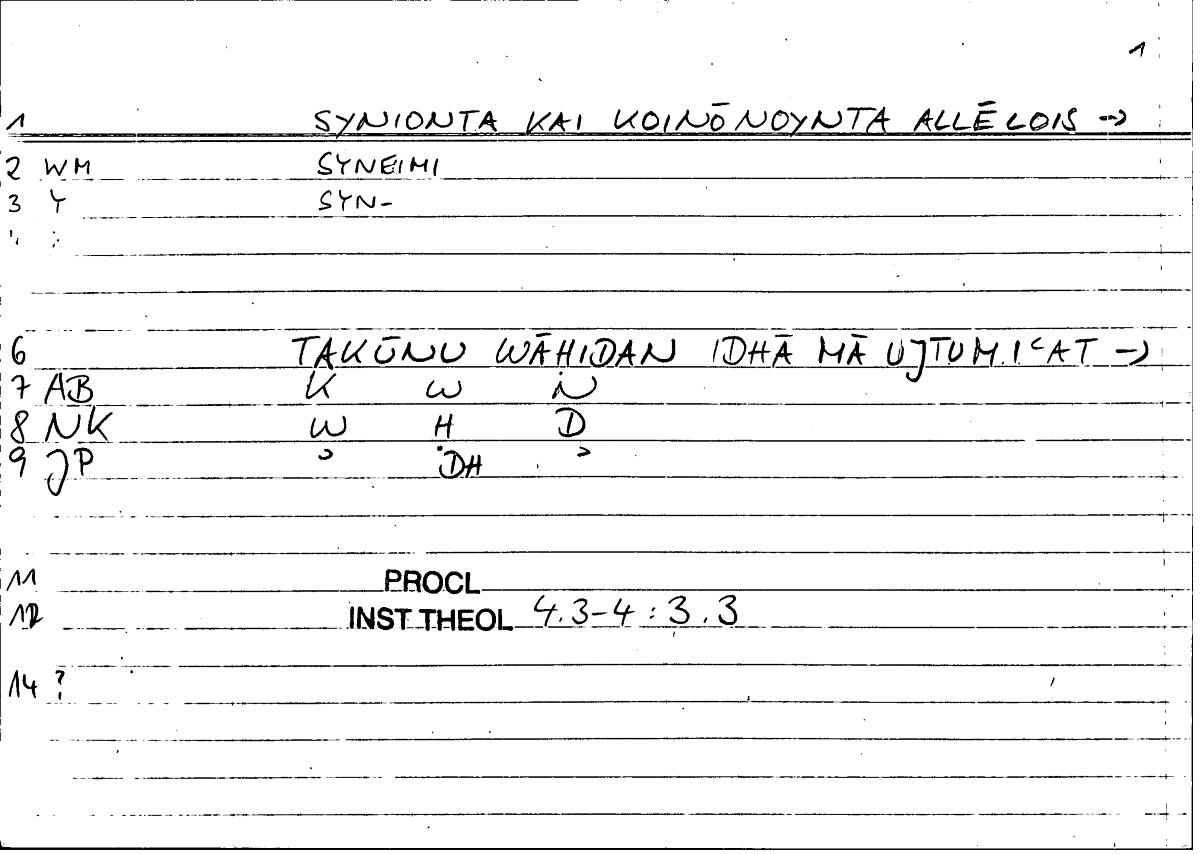 1
1 SYNIONTA KAI KOINŌNOYNTA ALLĒLOIS →
2 WM SYNEIMI
3 Y SYN-
6 TAKŪNU WĀHIDAN IDHĀ MĀ UJTUMIʿAT →
7 AB K W N
8 NK W H D
9 JP ʾ DH ʾ
11 PROCL
12 INST THEOL 4.3-4 : 3.3
14 ?